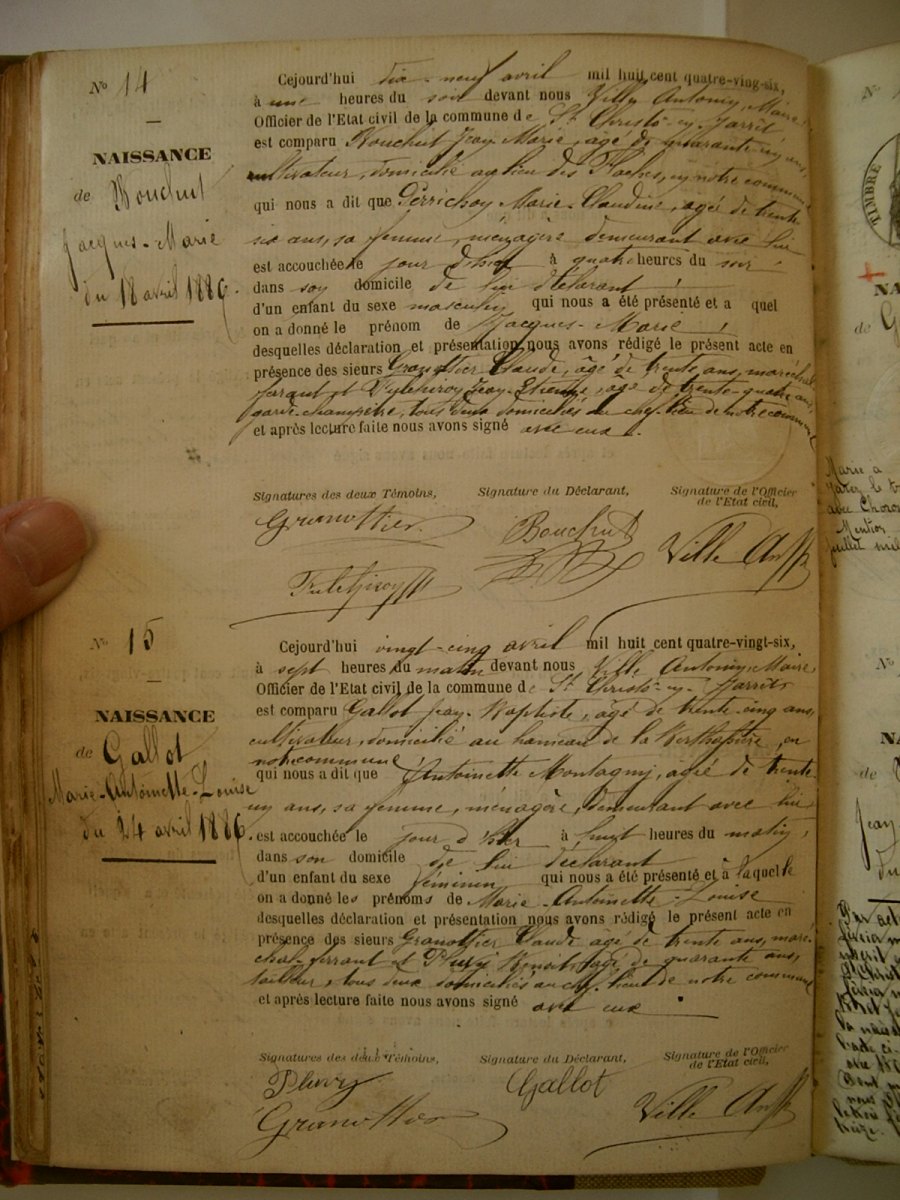 N° 14
NAISSANCE
de Bouchut
Jacques-Marie
du 18 avril 1886.
Cejourd'hui dix-neuf avril mil huit cent quatre-ving-six,
à une heures du soir devant nous Ville Antonin, Maire
Officier de l'Etat civil de la commune de St Christô-en-Jarrêt
est comparu Bouchut Jean-Marie, âgé de quarante-un ans,
cultivateur, domicilié au lieu des Flaches, en notre commune
qui nous a dit que Perrichon Marie-Claudine, agée de trente
six ans, sa femme, ménagère demeurant avec lui
est accouchée le jour d'hier à quatre heures du soir
dans son domicile de lui déclarant
d'un enfant du sexe masculin qui nous a été présenté et a quel
on a donné le prénom de Jacques-Marie,
desquelles déclaration et présentation nous avons rédigé le présent acte en
présence des sieurs Granottier Claude, âgé de trente ans, maréchal
ferrant et Jean-Etienne, âgé de trente-quatre ans,
garde-champêtre, tous deux domiciliés au chef-lieu de notre commune
et après lecture faite nous avons signé avec eux.
Signatures des deux Témoins, Signature du Déclarant, Signature de l'Officier
de l'Etat civil,
Granottier Bouchut Ville Ant
N° 15
NAISSANCE
de Gallot
Marie-Antoinette-Louise
du 24 avril 1886.
Cejourd'hui vingt-cinq avril mil huit cent quatre-vingt-six,
à sept heures du matin devant nous Ville Antonin, Maire,
Officier de l'Etat civil de la commune de St Christô-en-Jarrêts
est comparu Gallot Jean-Baptiste, âgé de trente-cinq ans,
cultivateur, domicilié au hameau de la en
notre commune
qui nous a dit que Antoinette Montagny, agée de trente-
un ans, sa femme, ménagère, demeurant avec lui
est accouchée le jour d'hier à huit heures du matin,
dans son domicile de lui déclarant
d'un enfant du sexe féminin qui nous a été présenté et à laquelle
on a donné les prénoms de Marie-Antoinette-Louise
desquelles déclaration et présentation nous avons rédigé le présent acte en
présence des sieurs Granottier Claude âgé de trente ans, maré-
chal-ferrant et Pluvy Benoit, âgé de quarante ans,
tailleur, tous deux domiciliés au chef-lieu de notre commune
et après lecture faite nous avons signé avec eux.
Signatures des deux Témoins, Signature du Déclarant, Signature de l'Officier
de l'Etat civil,
Pluvy Gallot Ville Ant
Granottier
TIMBRE
Marie a